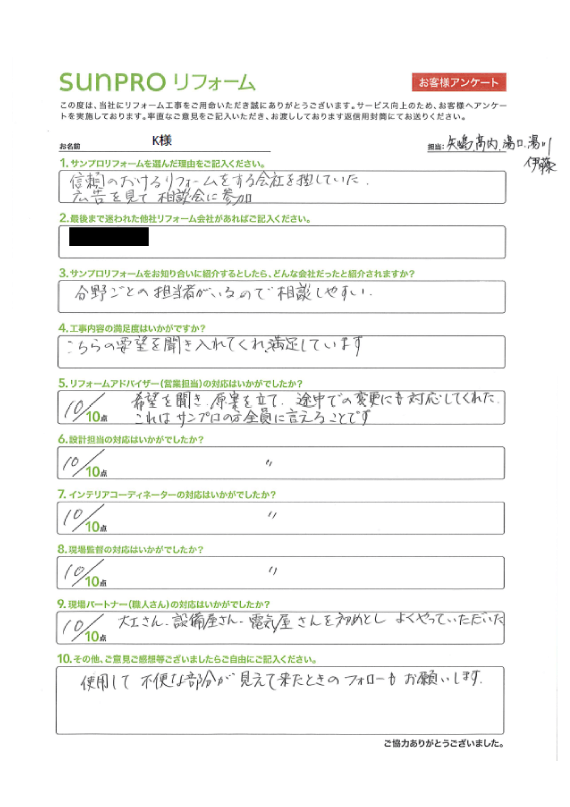 SUNPRO リフォーム
お客様アンケート
この度は、当社にリフォーム工事をご用命いただき誠にありがとうございます。サービス向上のため、お客様へアンケー
トを実施しております。率直なご意見をご記入いただき、お渡ししております返信用封筒にてお送りください。
お名前 K様
担当: 矢嶋、高内、湯口、湯川
伊藤
1. サンプロリフォームを選んだ理由をご記入ください。
信頼のおけるリフォームをする会社を探していた.
広告を見て 相談会に参加
2. 最後まで迷われた他社リフォーム会社があればご記入ください。
3. サンプロリフォームをお知り合いに紹介するとしたら、どんな会社だったと紹介されますか?
分野ごとの担当者がいるので相談しやすい.
4. 工事内容の満足度はいかがですか?
こちらの要望を聞き入れてくれ満足しています
5. リフォームアドバイザー(営業担当)の対応はいかがでしたか?
10/10点 希望を聞き、原案を立て、途中での変更にも対応してくれた.
これはサンプロの方全員に言えることです
6. 設計担当の対応はいかがでしたか?
10/10点 〃
7. インテリアコーディネーターの対応はいかがでしたか?
10/10点 〃
8. 現場監督の対応はいかがでしたか?
10/10点 〃
9. 現場パートナー(職人さん)の対応はいかがでしたか?
10/10点 大工さん、設備屋さん、電気屋さんを初めとし よくやっていただいた
10. その他、ご意見ご感想等ございましたらご自由にご記入ください。
使用して 不便な部分が 見えて来たときの フォローも お願いします.
ご協力ありがとうございました。